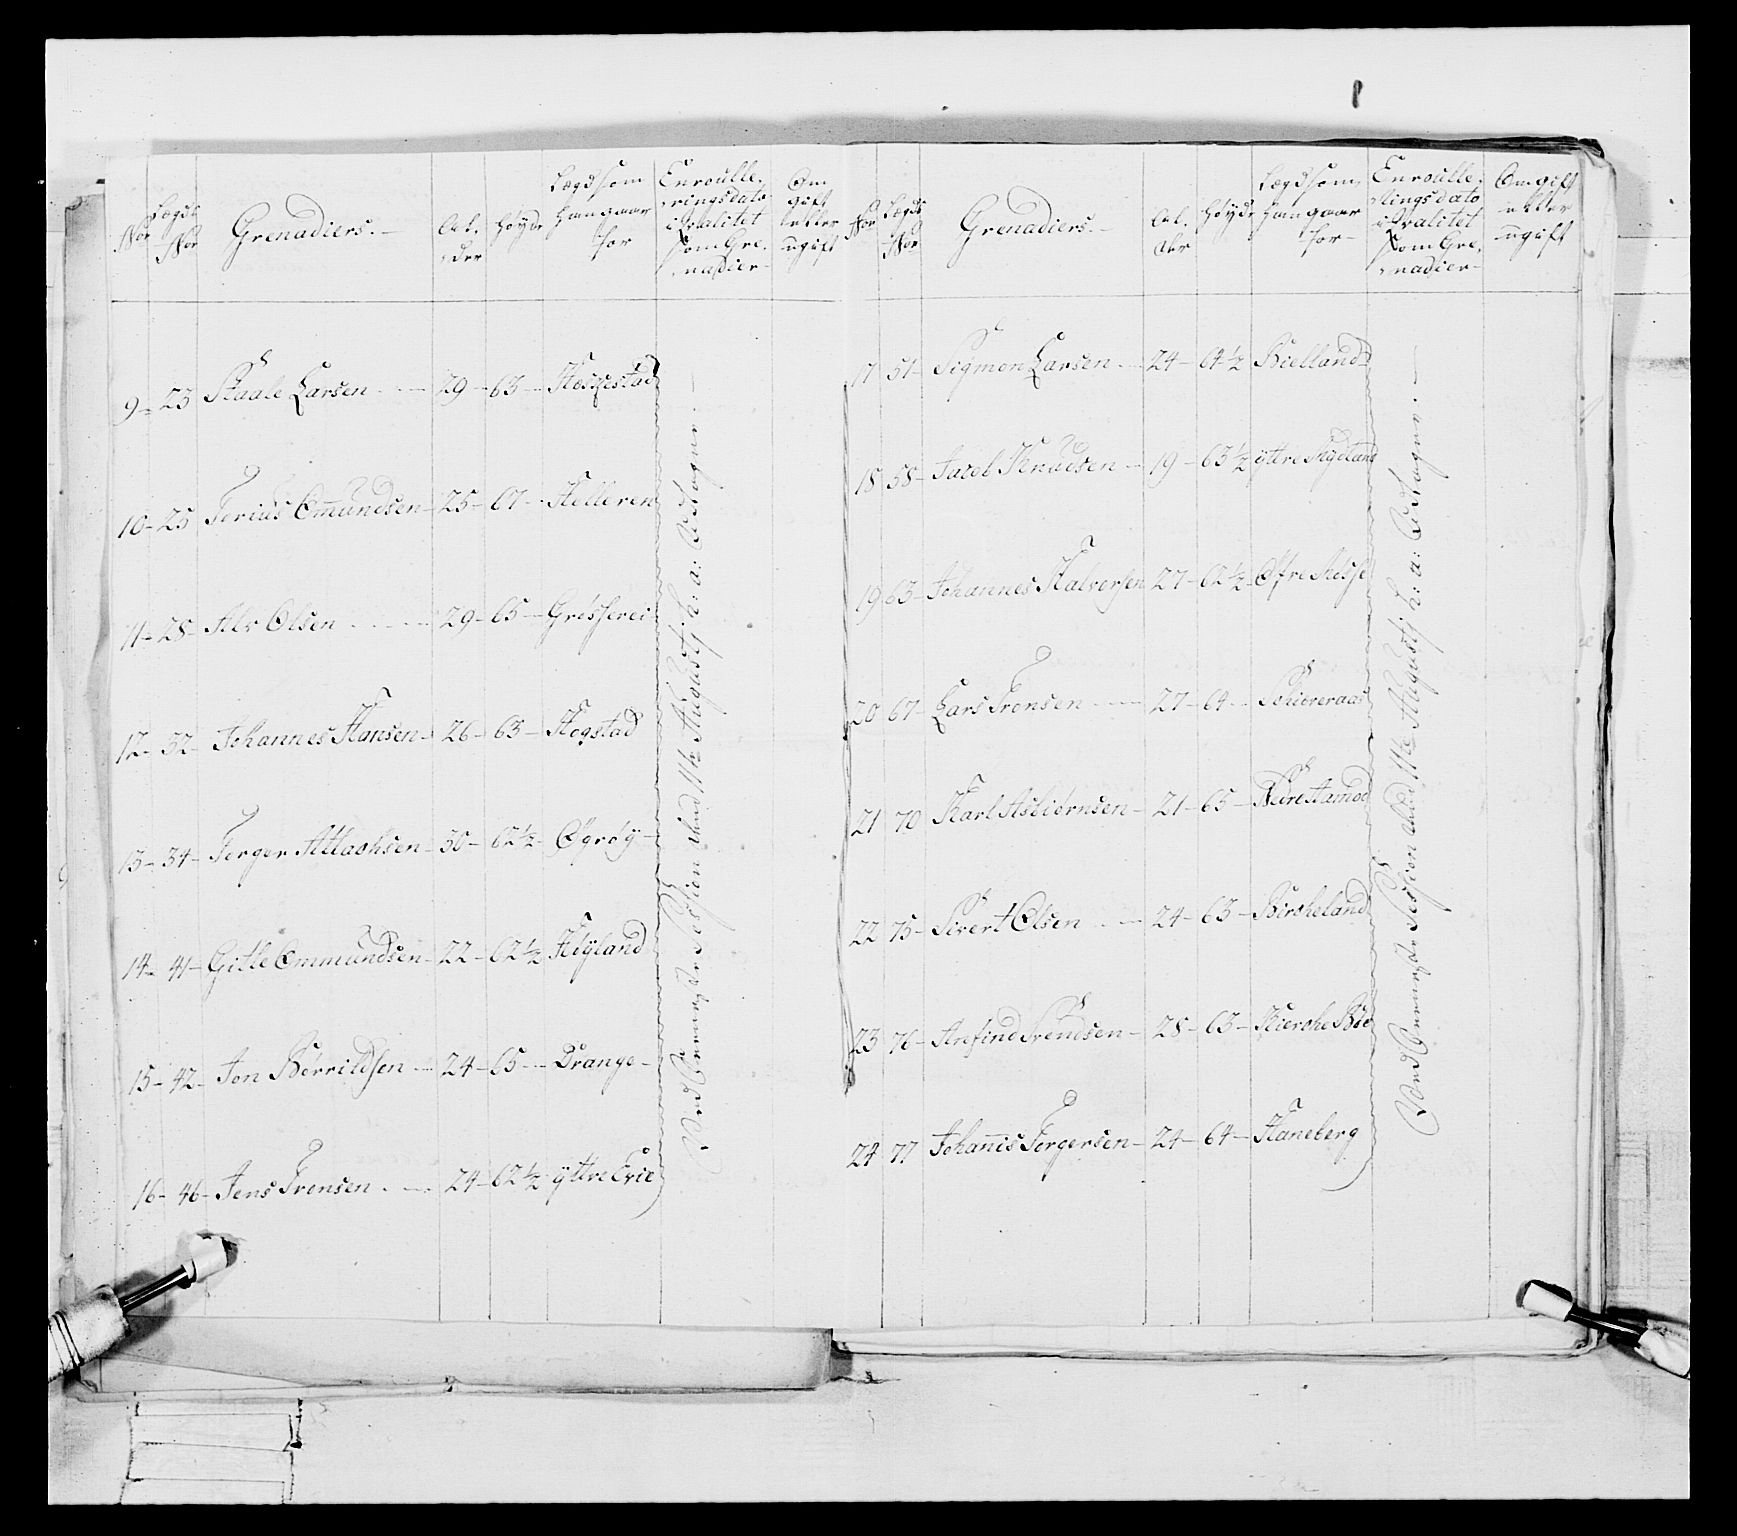 No͞r
Lægds No͞r
Grenadiers.
Al,
der
Høyde
Lægd som
han gaar
for
Enroulle,
ringsdato
i Qvalitet
som Gre,
nadier
Om
gift
eller
ugift
9 - 23 Staale Larsen - 29 - 63 - Heskestad
10 - 25 Torius Om̅undsen - 25 - 67 - Helleren
11 - 28 Alv Olsen - 29 - 65 - Grøsserei
12 - 32 Johannes Hansen - 26 - 63 - Hogstad
13 - 34 - Torger Attachsen - 30 - 62½ - Ögröy
14 - 41 - Gitle Ommundsen - 22 - 62½ Höyland
15 - 42 - Jon Börrildsen - 24 - 65 - Drange
16 - 46 - Jens Tronsen - 24 - 62½ yttre Evie
Ved Session den 11te Augustj h: a: Antagne
No͞r
Lægds No͞r
Grenadiers.
Al,
der
Høyde
Lægd som
han gaar
for
Enroulle,
ringsdato
i Qvalitet
som Gre,
nadier
Om gift
eller
ugift
17 51 - Sigmon Larsen - 24 - 64½ Hielland
18 58 - Jacob Knudsen - 19 - 63½ yttre Skydland
19 63 - Johannes Halvorsen 27 - 62½ Ofre
20 67 - Lars Tronsen - 27 - 64 - Schiereraas
21 70 Karl Asbiörnsen - 21 - 65 - Nedre Aamod
22 75 - Sivert Olsen - 24 - 63 - Bircheland
23 76 - Anfind Svendsen - 28 - 63 - Kirche Böe
24 77 Johan̅is Torgersen - 24 - 64 - Haneberg
Ved Session den 11te Augustj h: a: Antagne